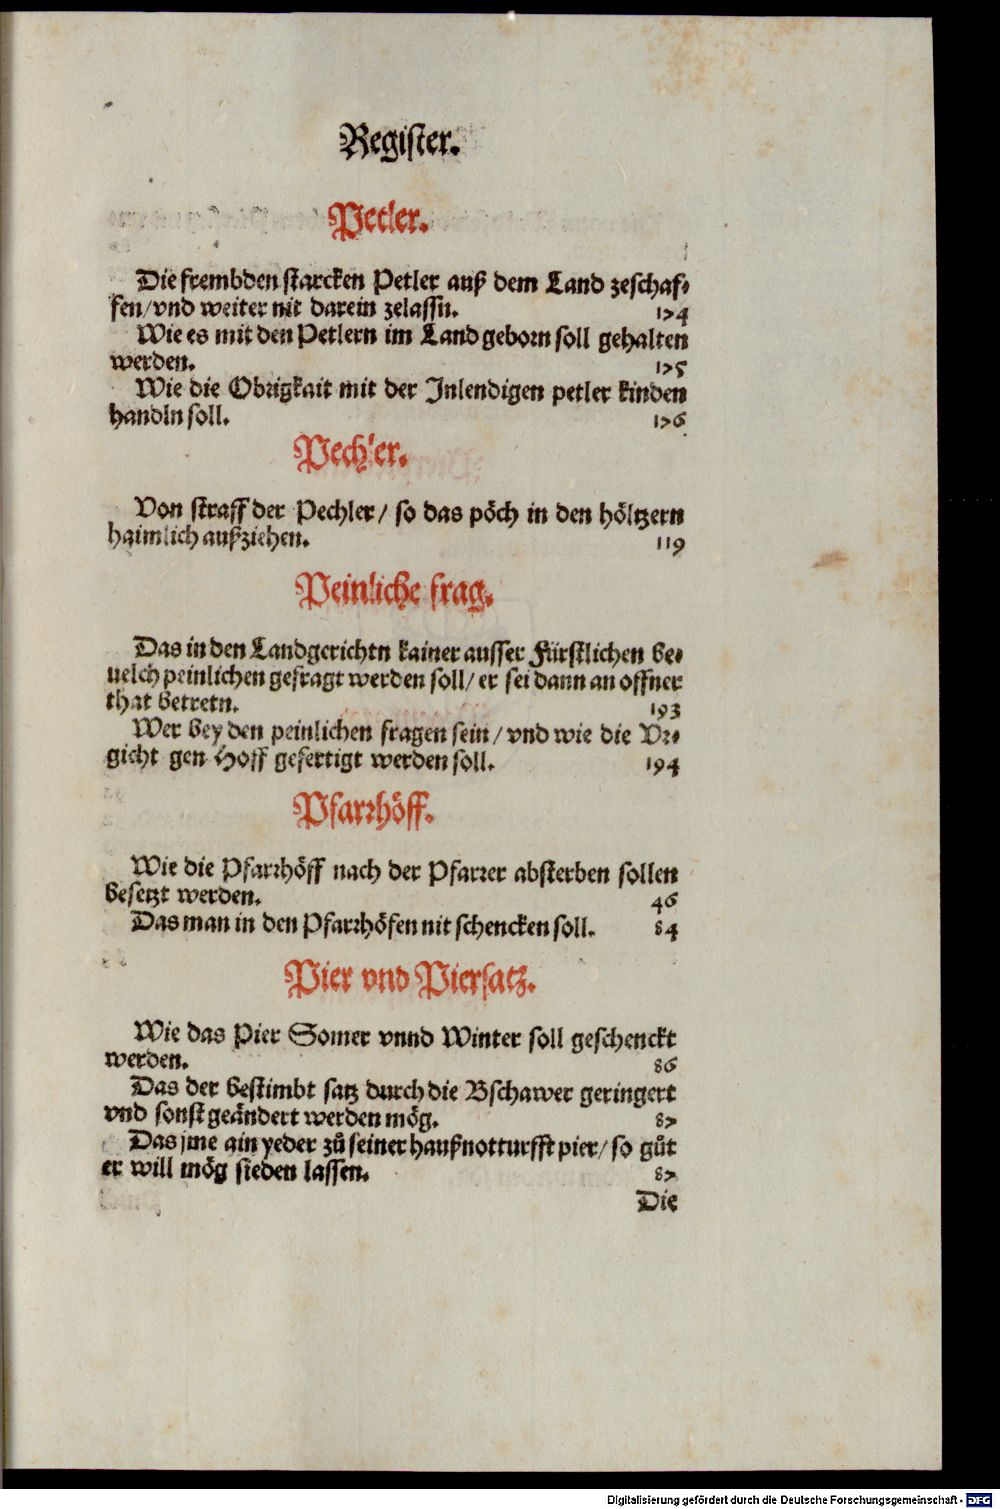 Register.
Petler.
Die frembden starcken Petler auß dem Land zeschaf⸗
fen/vnd weiter nit darein zelassn. 174
Wie es mit den Petlern im Land geborn soll gehalten
werden. 175
Wie die Obrigkait mit der Inlendigen petler kinden
handln soll. 176
Pechler.
Von straff der Pechler/ so das pöch in den höltzern
haimlich außziehen. 119
Peinliche frag.
Das in den Landgerichtn kainer ausser Fürstlichen be⸗
uelch peinlichen gefragt werden soll/ er sei dann an offner
that betretn. 193
Wer bey den peinlichen fragen sein/ vnd wie die Vr⸗
gicht gen Hoff gefertigt werden soll. 194
Pfarrhöff.
Wie die Pfarrhöff nach der Pfarrer absterben sollen
besetzt werden. 46
Das man in den Pfarrhöfen nit schencken soll. 84
Pier vnd Piersatz.
Wie das Pier Somer vnnd Winter soll geschenckt
werden. 86
Das der bestimbt satz durch die Bschawer geringert
vnd sonst geändert werden mög. 87
Das jme ain yeder zů seiner haußnotturfft pier/ so gůt
er will mög sieden lassen. 87
Die
Digitalisierung gefördert durch die Deutsche Forschungsgemeinschaft - DFG